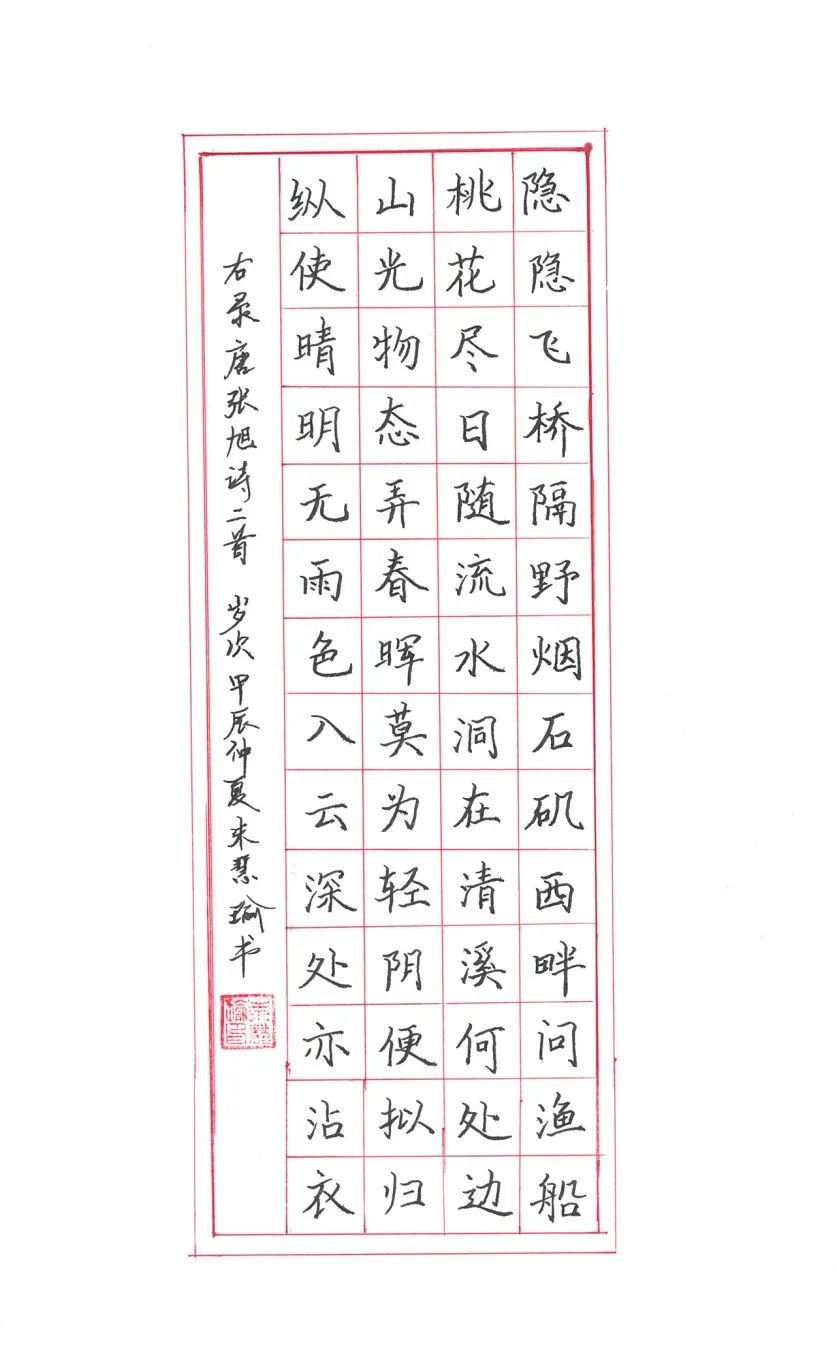 隐隐飞桥隔野烟石矶西畔问渔船
桃花尽日随流水洞在清溪何处边
山光物态弄春晖莫为轻阴便拟归
纵使晴明无雨色入云深处亦沾衣
右录唐张旭诗二首 岁次甲辰仲夏朱慧瑜书